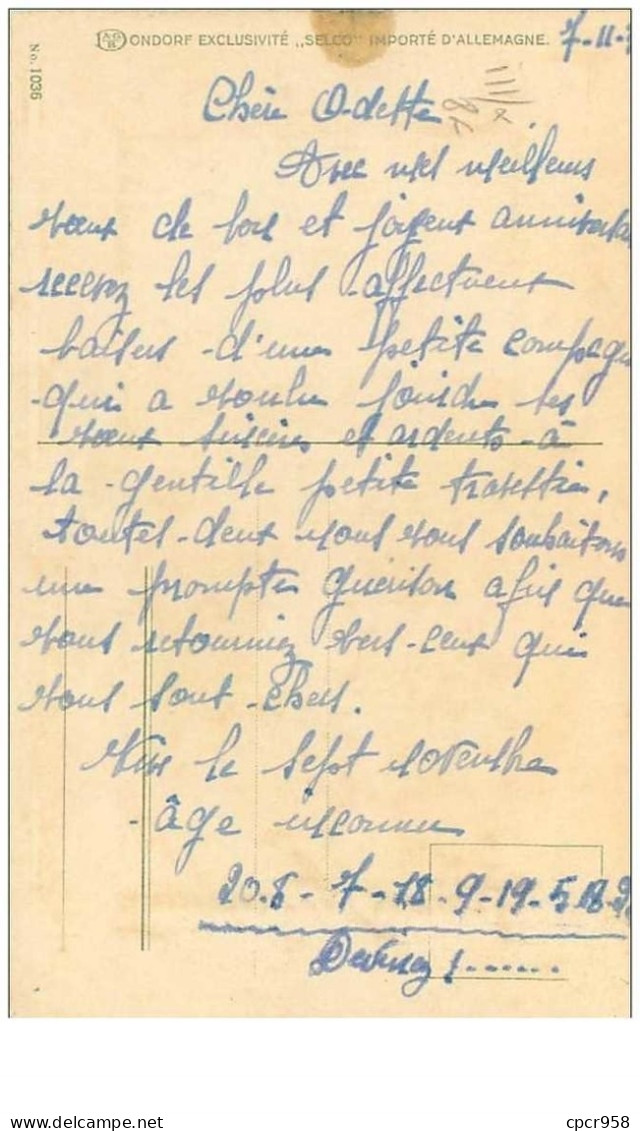 ONDORF EXCLUSIVITÉ „SELCO” IMPORTÉ D'ALLEMAGNE.
No. 1036
7-11-
Chère Odette
Avec mes meilleurs
vœux de bon et joyeux anniversa
recevez les plus affectueux
baisers d'une petite compagn
qui a voulu joindre ses
vœux sincères et ardents à
la gentille petite
toutes deux nous vous souhaitons
une prompte guérison afin que
vous retourniez vers ceux qui
vous sont chers.
Vive le sept novembre
âge inconnu
7-18-9-19-5
Devinez !......
cpcr958